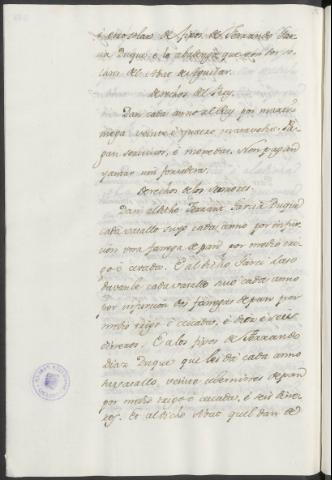 é otro solar de fijos de Ferrando Diaz
Duque, é la abadenga que son dos so-
lares del Abat de Aguilar.
Derechos del Rey.
Dan cada anno al Rey por martini-
nega veinte é quatro maravedis. Pa-
gan servicios, é monedas. Non pagan
yantar nin fonsadera.
Derechos de los Sennores.
Dan al dicho Ferrand Garcia Duque
cada vasallo suyo cada anno por infur-
cion una fanega de pan por medio tri-
go é cevada. E al dicho Garci Laso
davanle cada vasallo suio cada anno
por infurcion dos fanegas de pan por
medio trigo é cevada, é diez é seis
dineros. E a los fijos de Ferrando
Diaz Duque que les dá cada anno
su vasallo, veinte celemines de pan
por medio trigo é cevada, é seis dine-
ros. Et al dicho Abat quel dan de